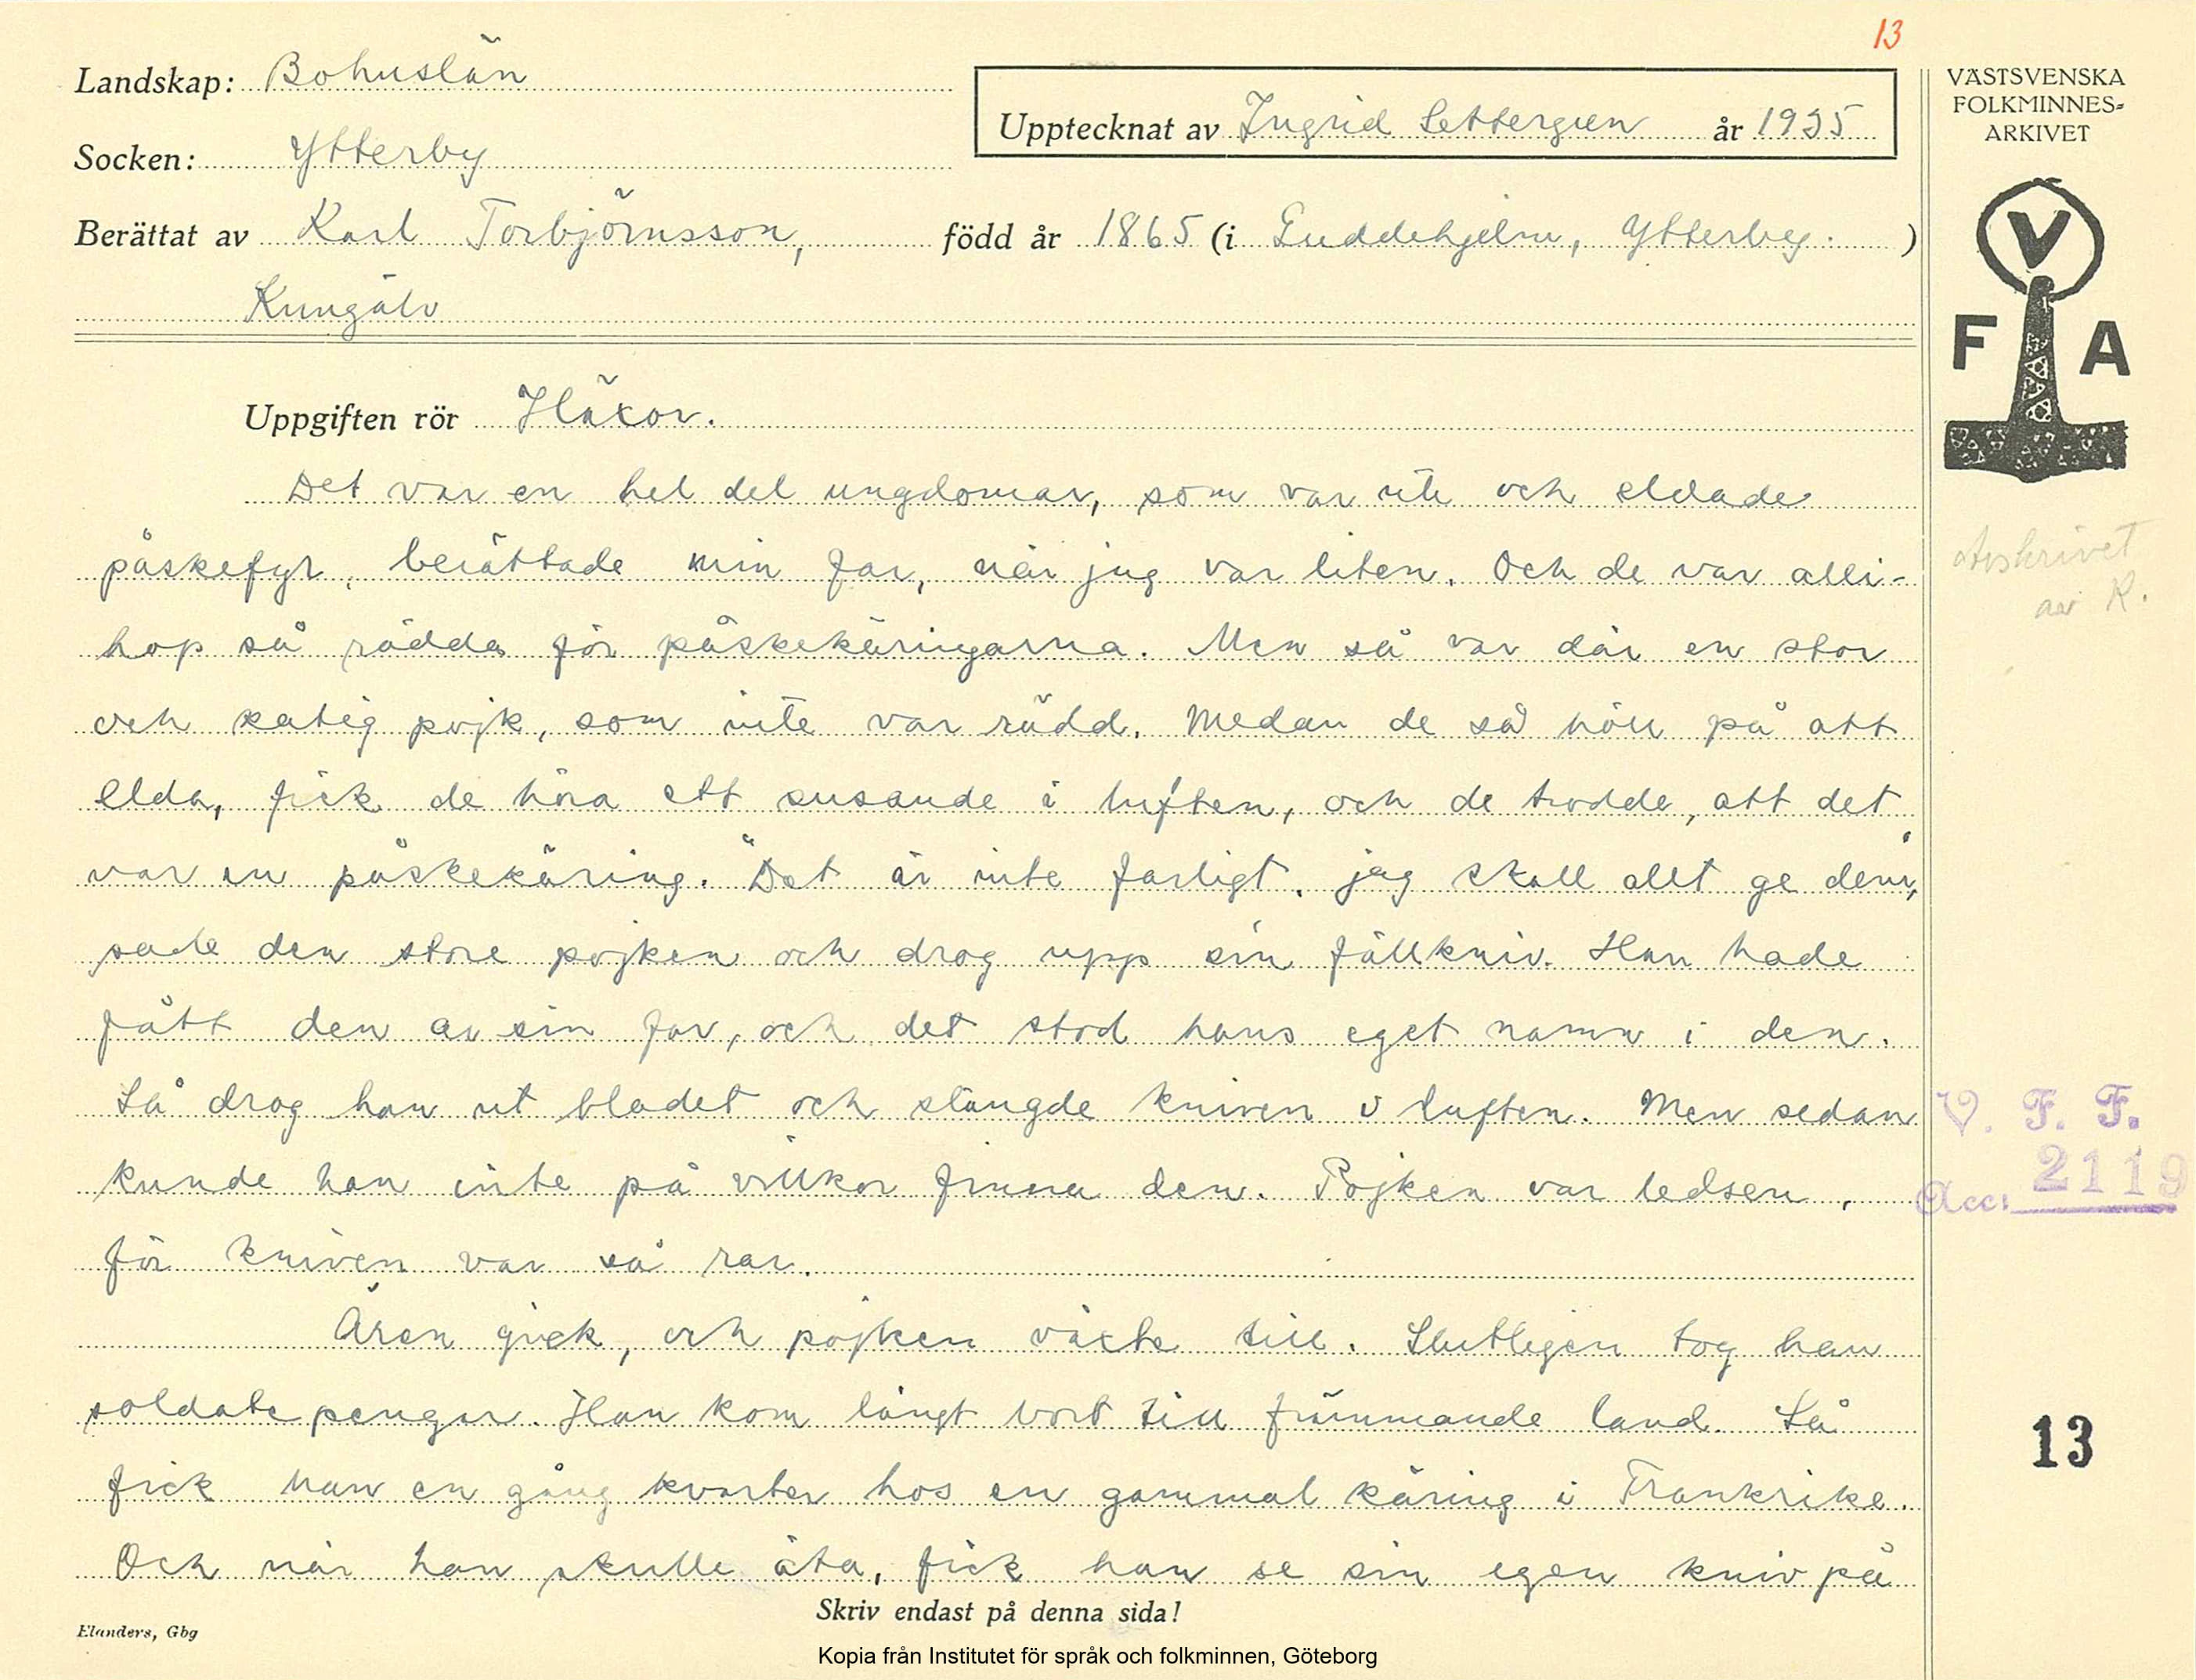 13
Landskap: Bohuslän
Upptecknat av Ingrid Settergren år 1935
Socken: Ytterby
Berättat av Karl Torbjörnsson, född år 1865 (i Guddehjelm, Ytterby. )
Kungälv
Uppgiften rör Häxor.
Det var en hel del ungdomar, som var ute och eldade
påskefyr, berättade min far, när jag var liten. Och de var alli-
hop så rädda för påskekäringarna. Men så var där en stor
och katig pojk, som inte var rädd. Medan de så höll på att
elda, fick de höra ett susande i luften, och de trodde, att det
var en påskekäring. "Det är inte farligt, jag skall allt ge dem,"
sade den store pojken och drog upp sin fällkniv. Han hade
fått den av sin far, och det stod hans eget namn i den.
Så drog han ut bladet och slängde kniven i luften. Men sedan
kunde han inte på villkor finna den. Pojken var ledsen,
för kniven var så rar.
Åren gick, och pojken växte till. Slutligen tog han
soldatepengar. Han kom långt bort till främmande land. Så
fick han en gång kvarter hos en gammal käring i Frankrike.
Och när han skulle äta, fick han se sin egen kniv på
Skriv endast på denna sida!
Elanders, Gbg
Kopia från Institutet för språk och folkminnen, Göteborg
VÄSTSVENSKA
FOLKMINNES-
ARKIVET
V
F A
Avskrivet
av R.
V. F. F.
Acc: 2119
13